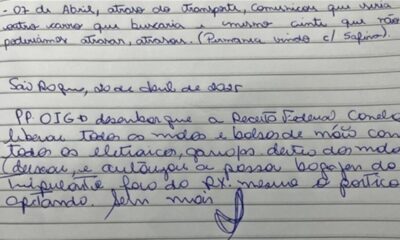 - 07 de Abril, atraso do transporte, comunicou que viria
outro carro que buscaria e mesmo ciente que não
poderíamos atrasar, atrasou. (Permania vindo c/ Safira).
São Roque, 20 de abril de 2025
PP OIG desembarque a Receita Federal
liberar todos os malas e bolsas de mão com
todos os eletrônicos, garrafas dentro das malas
(deixou, e autorizou a passar bagagem do
tripulante, fora do RX. mesmo o pórtico
apitando. Sem mais